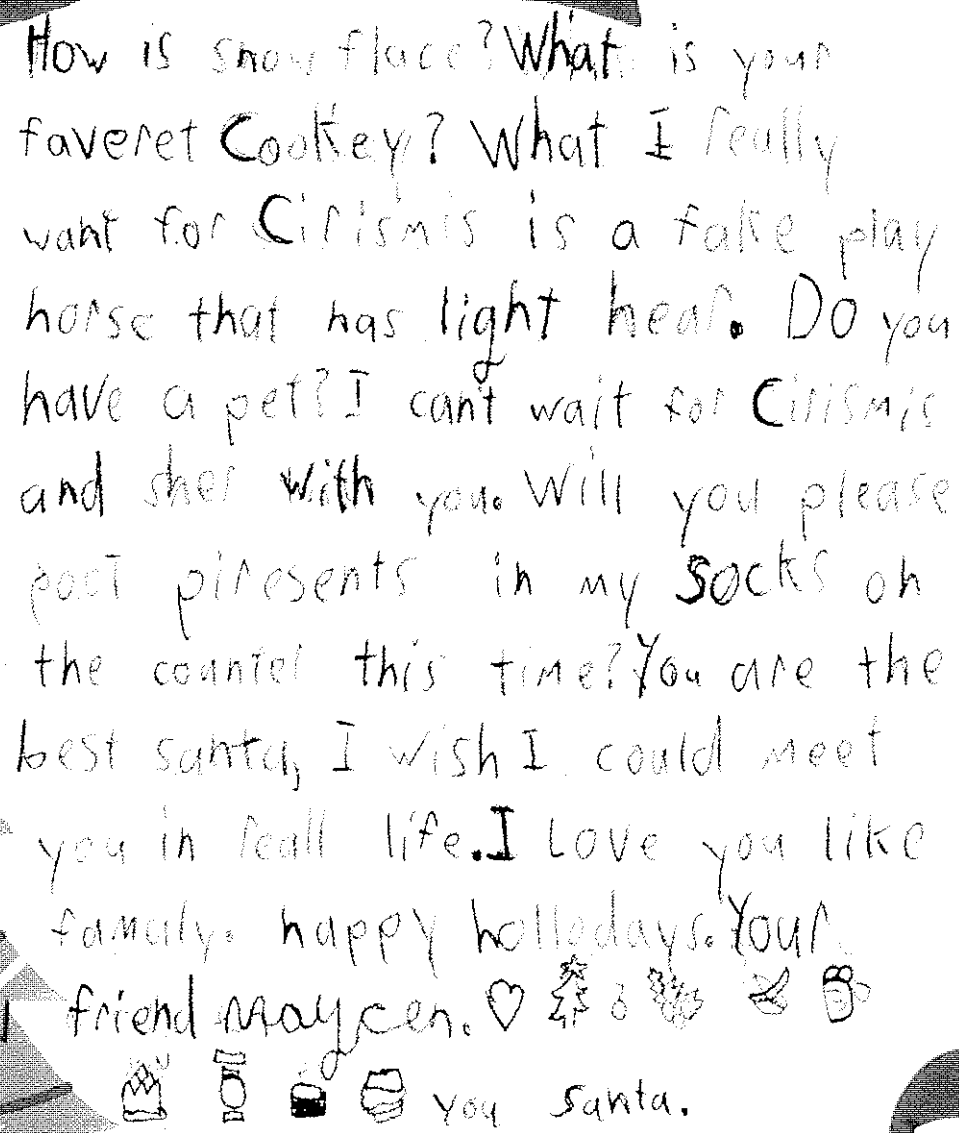 How is snow flace? What is your
faveret Cookey? What I really
want for Cirismis is a fake play
horse that has light hear. Do you
have a pet? I can't wait for Cirismis
and sher with you. Will you please
poot piresents in my socks on
the counter this time? You are the
best santa, I wish I could meet
you in reall life. I Love you like
famaly. happy hollodays. Your
friend Maycen.
you santa.